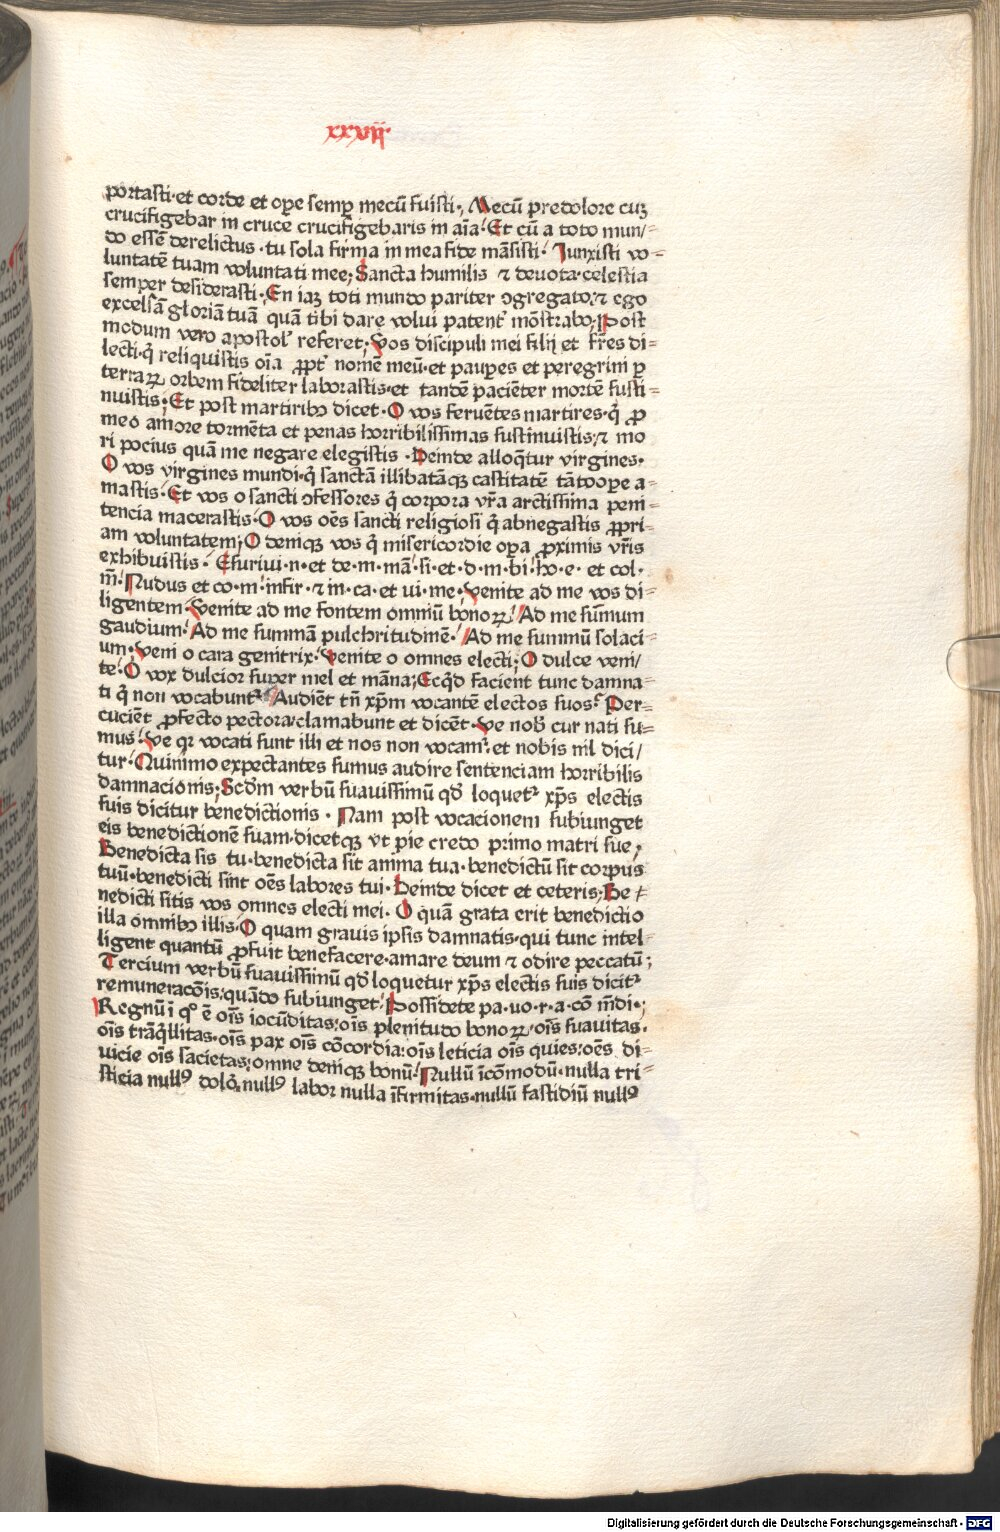 xxvij
portasti·et corde et oꝑe semꝑ mecū fuisti·, Mecū predolore cuꝫ
crucifigebar in cruce crucifigebaris in aīa! Et cū a toto mun/
do essēt derelictus·tu sola firma in mea fide māsisti! Junxisti vo-
luntatē tuam voluntati mee; Sancta humilis ⁊ deuota·celestia
semper desiderasti·En iaꝫ toti mundo pariter ↄgregato:⁊ ego
excelsā gloriā tuā quā tibi dare volui patent' mōstrabo;Post
modum vero apostol' referet;Vos discipuli mei filij et fr̄es di-
lecti·q̄ reliquistis oīa ꝓpt' nomē meū·et pauꝑes et peregrini ꝑ
terraꝝ orbem fideliter laborastis·et tandē paciēter mortē susti-
nuistis;Et post martiribꝰ dicet·O vos feruētes martires·q̄ ꝓ
meo amore tormēta et penas horribilissimas sustinuistis:⁊ mo
ri pocius quā me negare elegistis·Deinde alloq̄tur virgines·
O vos virgines mundi·q̄ sanctā illibatāqꝫ castitatē tātoꝑe a-
mastis·Et vos o sancti ↄfessores q̄ corpora vr̄a arctissima peni-
tencia macerastis·O vos oēs sancti religiosi q̄ abnegastis ꝓpri-
am voluntatem;O deniqꝫ vos q̄ misericordie oꝑa ꝓximis vr̄is
exhibuistis! Esuriui·n·et de·m·mā!si·et·d·m·bi!ho·e· et col·
m̄!Nudus et co·m!infir·⁊ in·ca·et ui·me·Venite ad me vos di-
ligentem·Venite ad me fontem omniū bonoꝝ!Ad me sum̄um
gaudium!Ad me summā pulchritudinē!Ad me summū solaci-
um·Veni o cara genitrix!Venite o omnes electi;O dulce veni/
te·O vox dulcior super mel et māna;Ecq̄d facient tunc damna-
ti q̄ non vocabunt'!Audiēt tn̄ xp̄m vocantē electos suos! Per-
cucient ꝓfecto pectora·clamabunt et dicēt·Ve nob' cur nati su-
mus!Ve qꝛ vocati sunt illi et nos non vocam'·et nobis nil dici/
tur!Quinimo expectantes sumus audire sentenciam horribilis
damnacionis;Scd̄m verbū suauissimū qd̄ loquet' xp̄s electis
suis dicitur benedictionis· Nam post vocacionem subiunget
eis benedictionē suam·dicetqꝫ vt pie credo primo matri sue,
Benedicta sis tu·benedicta sit anima tua·benedictū sit corpus
tuū·benedicti sint oēs labores tui·Deinde dicet et ceteris;Be-
nedicti sitis vos omnes electi mei·O quā grata erit benedictio
illa omnibꝰ illis·O quam grauis ipsis damnatis·qui tunc intel-
ligent quantū ꝓfuit benefacere·amare deum ⁊ odire peccatū;
Tercium verbū suauissimū qd̄ loquetur xp̄s electis suis dicit'
remuneracōis:quādo subiunget!Possidete pa·uo·r·a·cō m̄di·;
Regnū i qͦ ē oīs iocūditas:oīs plenitudo bonoꝝ·oīs suauitas·
oīs trāq̄llitas·oīs pax oīs cōcordia:oīs leticia oīs quies:oēs di-
uicie oīs sacietas:omne deniqꝫ bonū!Nullū īcōmodū·nulla tri-
sticia nullꝰ dolor·nullꝰ labor nulla īfirmitas·nullū fastidiū nullꝰ
Digitalisierung gefördert durch die Deutsche Forschungsgemeinschaft - DFG